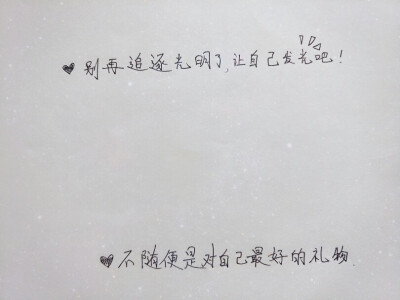 ♥别再追逐光明了,让自己发光吧!
♥不随便是对自己最好的礼物.